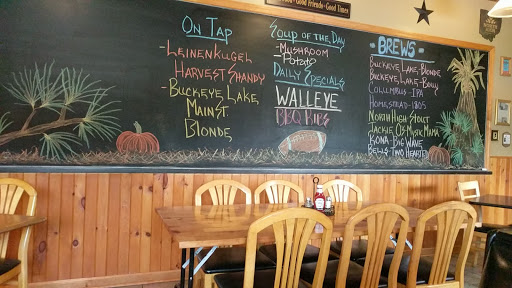 Good Friends · Good Times
On Tap
-Leinenkugel
Harvest Shandy
-Buckeye Lake,
Main St.
Blonde
Soup of the Day
-Mushroom
Potato
Daily Specials
WALLEYE
BBQ Ribs
- BREWS -
Buckeye Lake, Blonde
Buckeye Lake-
Columbus - IPA
Homestead-1805
North High-Stout
Jackie O's Mystic Mama
Kona-Big Wave
Bells-Two Hearted